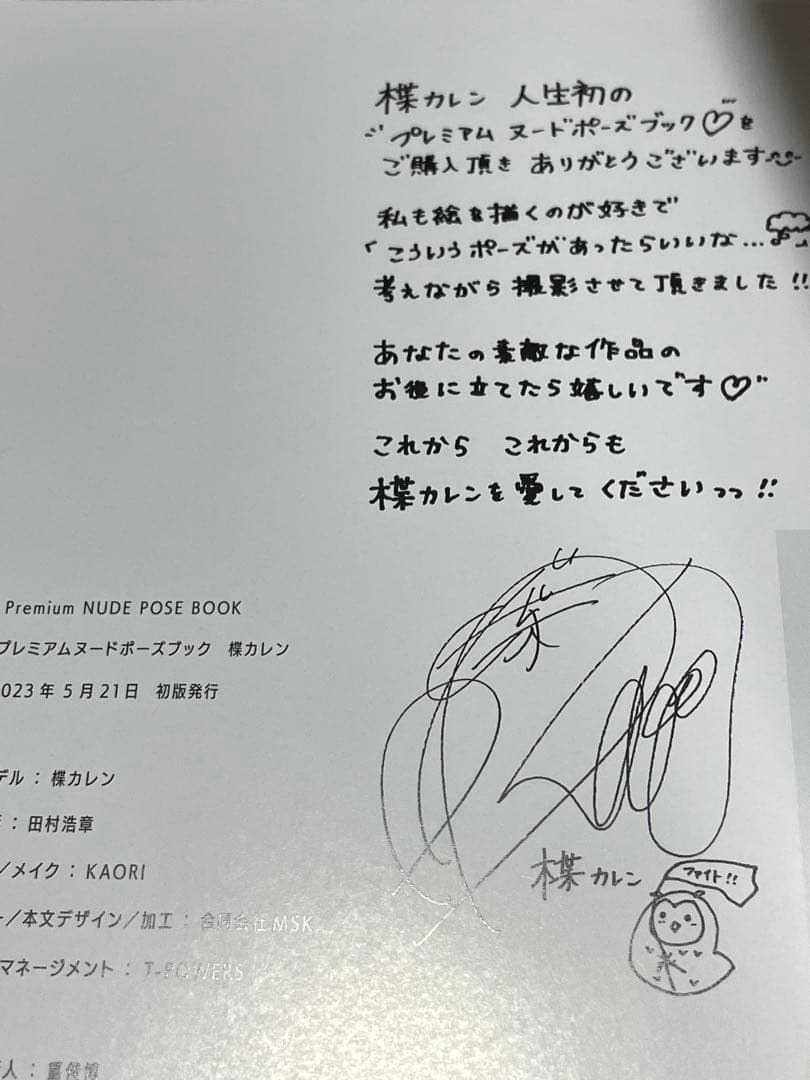 楪カレン 人生初の
プレミアム ヌードポーズブック♡を
ご購入頂き ありがとうございます
私も絵を描くのが好きで
「こういうポーズがあったらいいな…
考えながら 撮影させて頂きました!!
あなたの素敵な作品の
お役に立てたら嬉しいです♡
これから これからも
楪カレンを愛してくださいっっ!!
Premium NUDE POSE BOOK
プレミアムヌードポーズブック 楪カレン
023年5月21日 初版発行
デル：楪カレン
：田村浩章
／メイク：KAORI
ー／本文デザイン／加工：合同会社MSK
マネージメント：T-POWERS
人：
楪カレン
ファイト!!